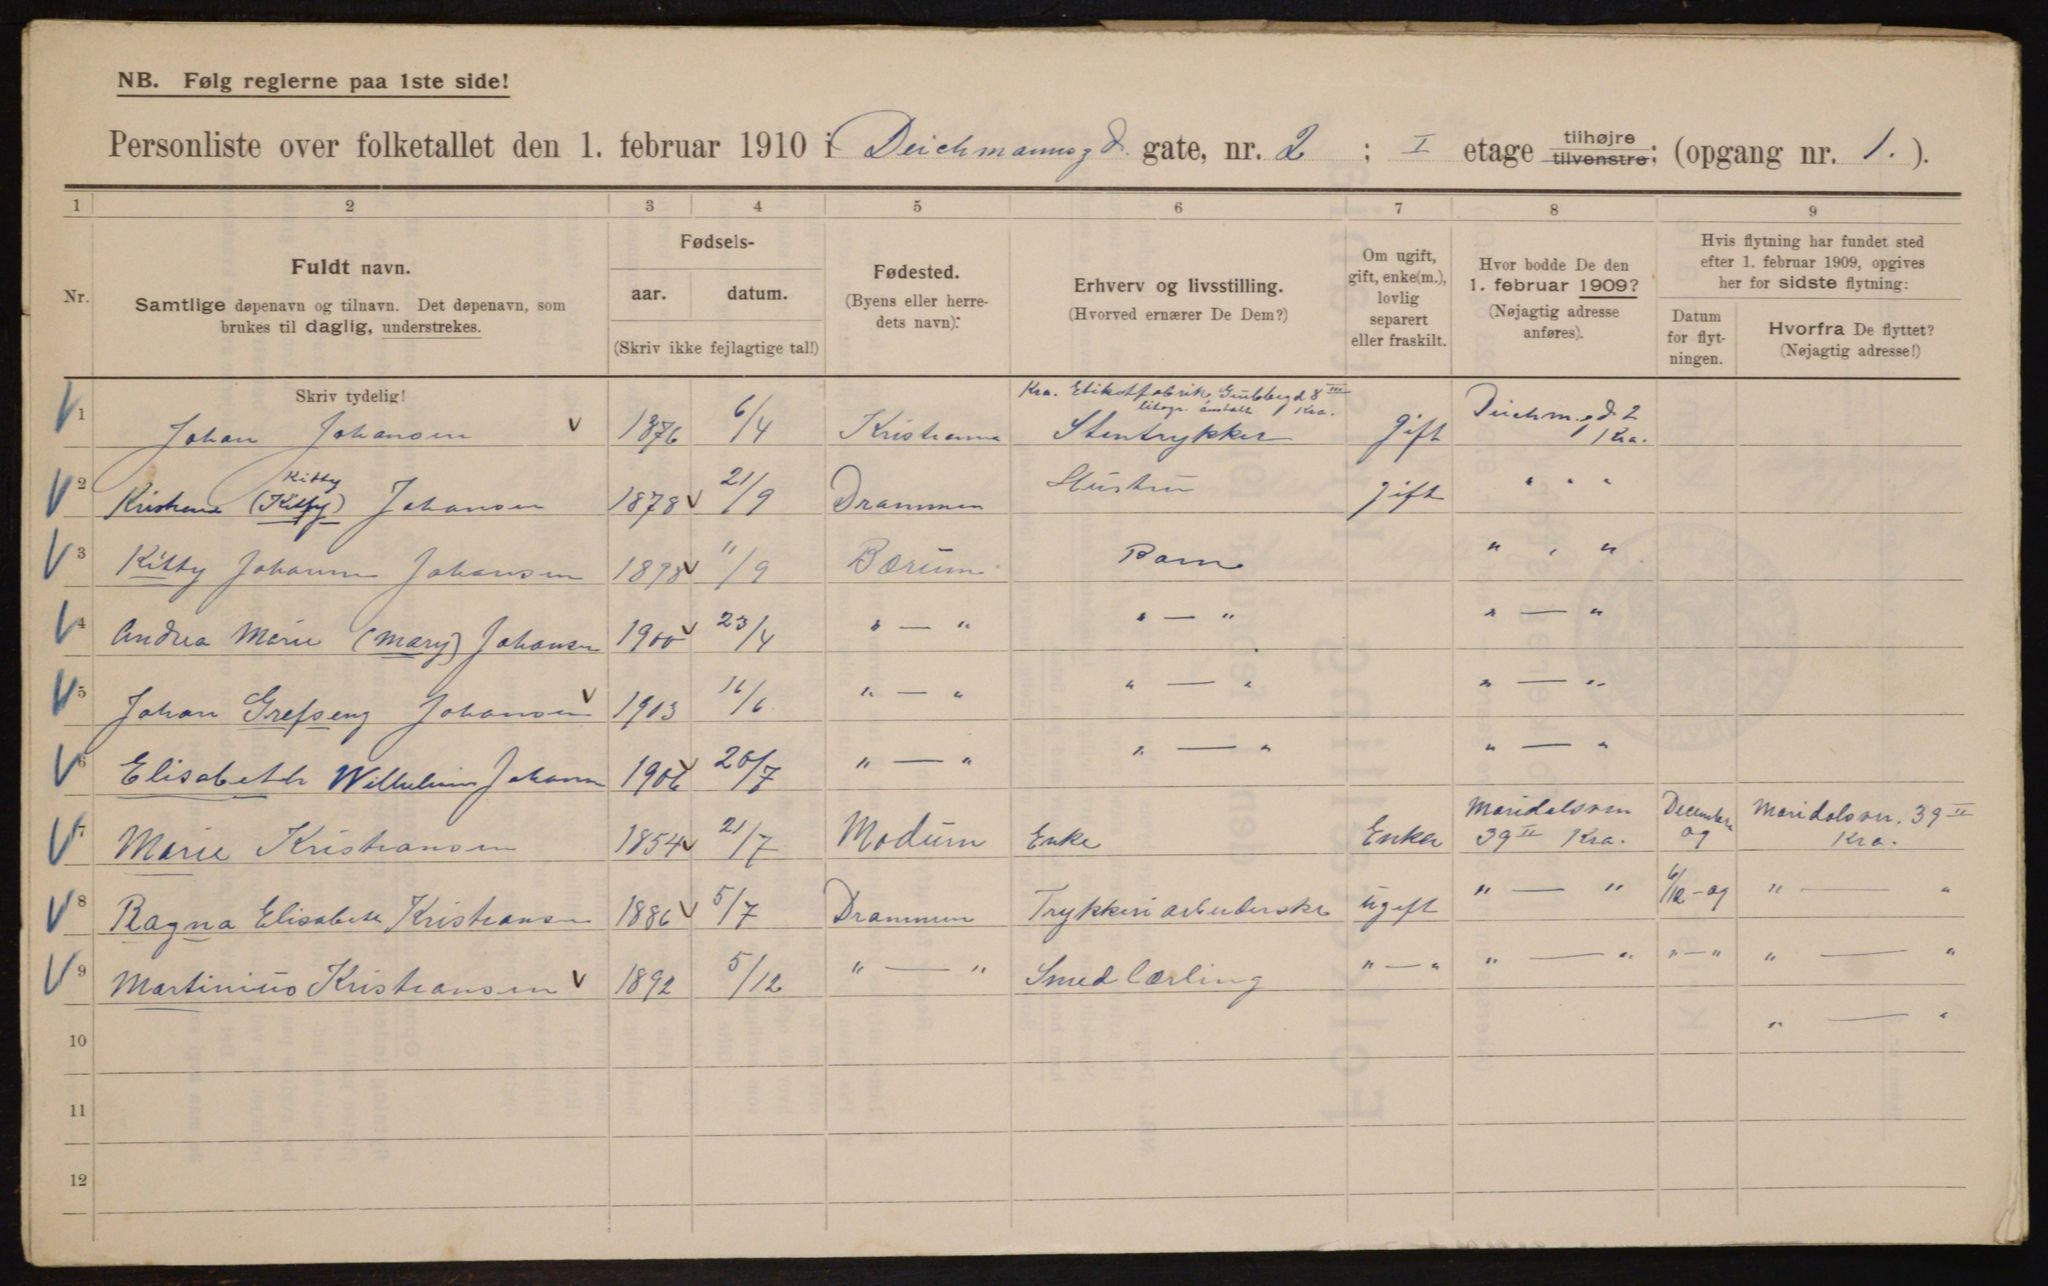 NB. Følg reglerne paa 1ste side!
Personliste over folketallet den 1. februar 1910 i Deichmannsgd. gate, nr. 2 ; I etage tilhøjre tilvenstre; (opgang nr. 1. ).
1 2 3 4 5 6 7 8 9
Nr.
Fuldt navn.
Samtlige døpenavn og tilnavn. Det døpenavn, som
brukes til daglig, understrekes.
Fødsels-
aar. datum.
(Skriv ikke fejlagtige tal!)
Fødested.
(Byens eller herre-
dets navn).
Erhverv og livsstilling.
(Hvorved ernærer De Dem?)
Om ugift,
gift, enke(m.),
lovlig
separert
eller fraskilt.
Hvor bodde De den
1. februar 1909?
(Nøjagtig adresse
anføres).
Hvis flytning har fundet sted
efter 1. februar 1909, opgives
her for sidste flytning:
Datum
for flyt-
ningen.
Hvorfra De flyttet?
(Nøjagtig adresse!)
Skriv tydelig!
Kra. Etiketfabrik 8 III
litogr. anstalt Kra.
1 Johan Johansen 1876 6/4 Kristiania Stentrykker gift Deichm.gd. 2 Kra.
Kitty
2 (Kitty) Johansen 1878 21/9 Drammen Hustru gift " " "
3 Kitty Johanne Johansen 1898 11/9 Bærum Barn " , "
4 Andrea Marie (Mary) Johansen 1900 23/4 " — " " — " " — "
5 Johan Grefseng Johansen 1903 16/6 " — " " — " " — "
6 Elisabeth Johansen 1906 20/7 " — " " — " " — "
7 Marie Kristiansen 1854 21/7 Modum Enke Enke Maridalsvn 39 II Kra. og Maridalsvn. 39 II Kra.
8 Ragna Elisabeth Kristiansen 1886 5/7 Drammen Trykkeriarbeiderske ugift " — " 6/12 - og " — "
9 Martinius Kristiansen 1892 5/12 " — " Smedlærling " — " " — " " — " " — "
10 " — "
11
12